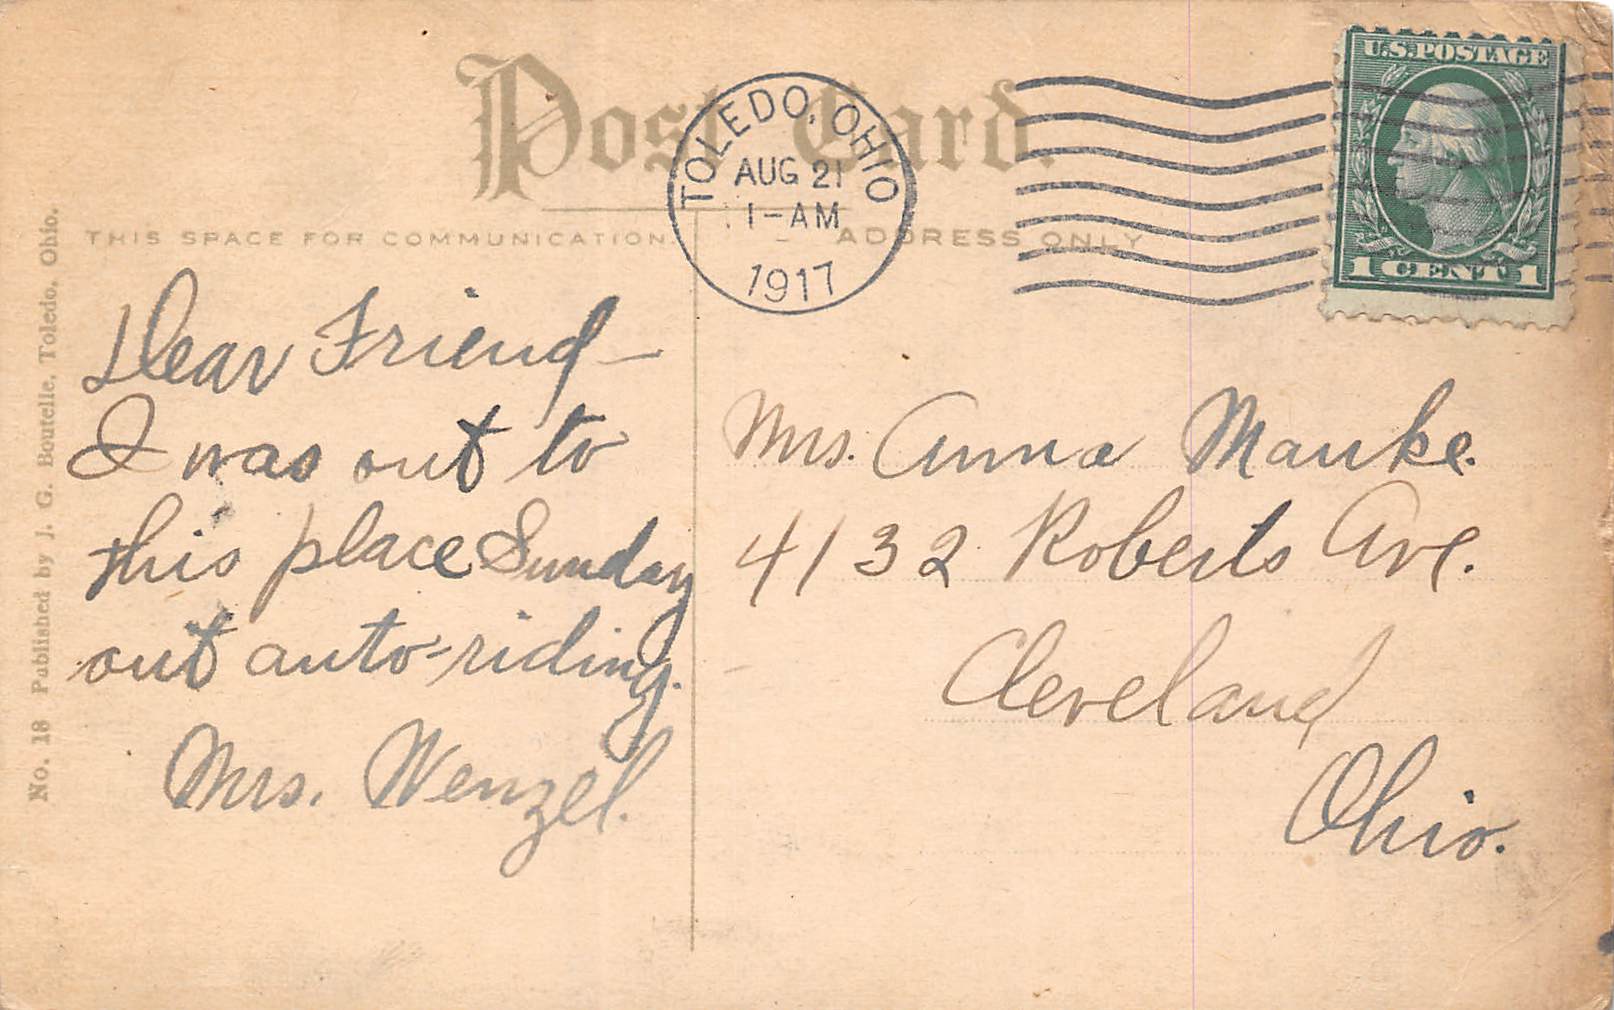 Post Card.
TOLEDO, OHIO
AUG 21
1-AM
1917
U.S. POSTAGE
1 CENT 1
THIS SPACE FOR COMMUNICATION
ADDRESS ONLY
Dear Friend—
I was out to
this place Sunday
out auto-riding.
Mrs. Wenzel.
Mrs. Anna Manke.
4132 Roberts Ave.
Cleveland
Ohio.
No. 18 Published by J. G. Boutelle, Toledo, Ohio.